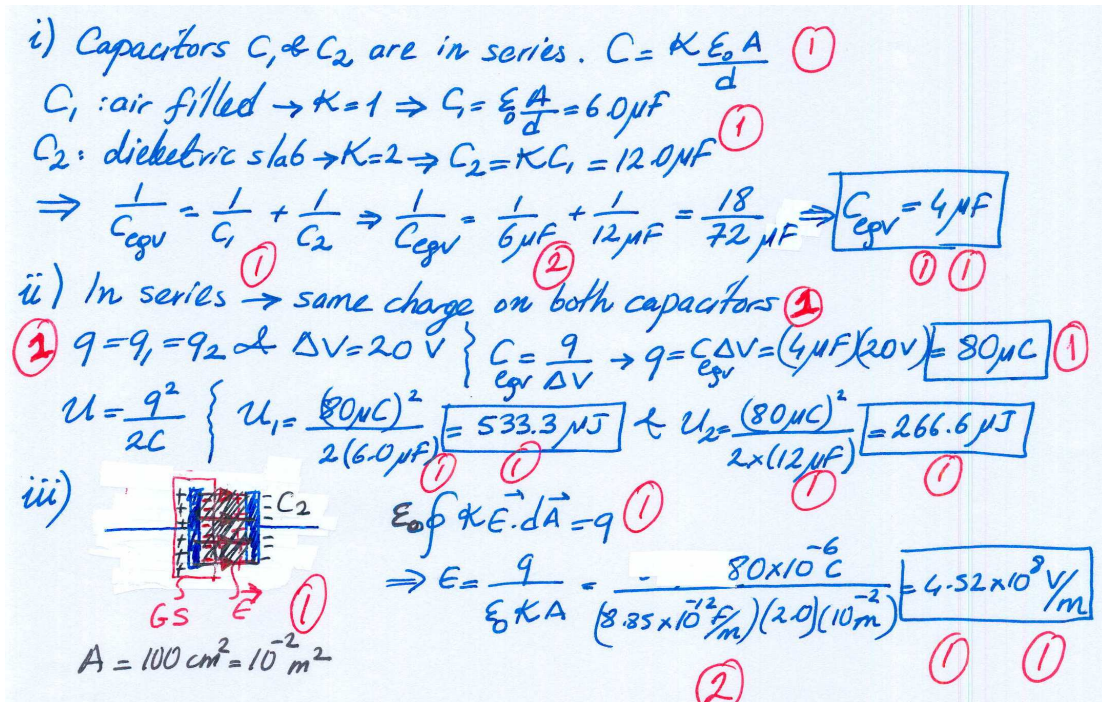 i) Capacitors C₁ & C₂ are in series. C = K ε₀ A / d ①
C₁ : air filled → K=1 ⇒ C₁ = ε₀ A/d = 6.0 μF
C₂ : dielectric slab → K=2 ⇒ C₂ = KC₁ = 12.0 μF ①
⇒ 1/Ceqv = 1/C₁ + 1/C₂ ⇒ 1/Ceqv = 1/6μF + 1/12μF = 18/72 μF ⇒ Ceqv = 4 μF
① ② ① ①
ii) In series → same charge on both capacitors ①
① q = q₁ = q₂ & ΔV = 20 V } Ceqv = q/ΔV → q = Ceqv ΔV = (4μF)(20V) = 80μC ①
U = q²/2C { U₁ = (80μC)²/2(6.0μF) = 533.3 μJ & U₂ = (80μC)²/2×(12μF) = 266.6 μJ
① ① ① ①
iii) + + + + + + - - - - C₂
GS E⃗ ①
A = 100 cm² = 10⁻² m²
ε₀ ∮ K E⃗ . dA⃗ = q ①
⇒ E = q/ε₀KA = 80×10⁻⁶ C/(8.85×10⁻¹² F/m)(2.0)(10⁻² m²) = 4.52×10⁸ V/m
② ① ①